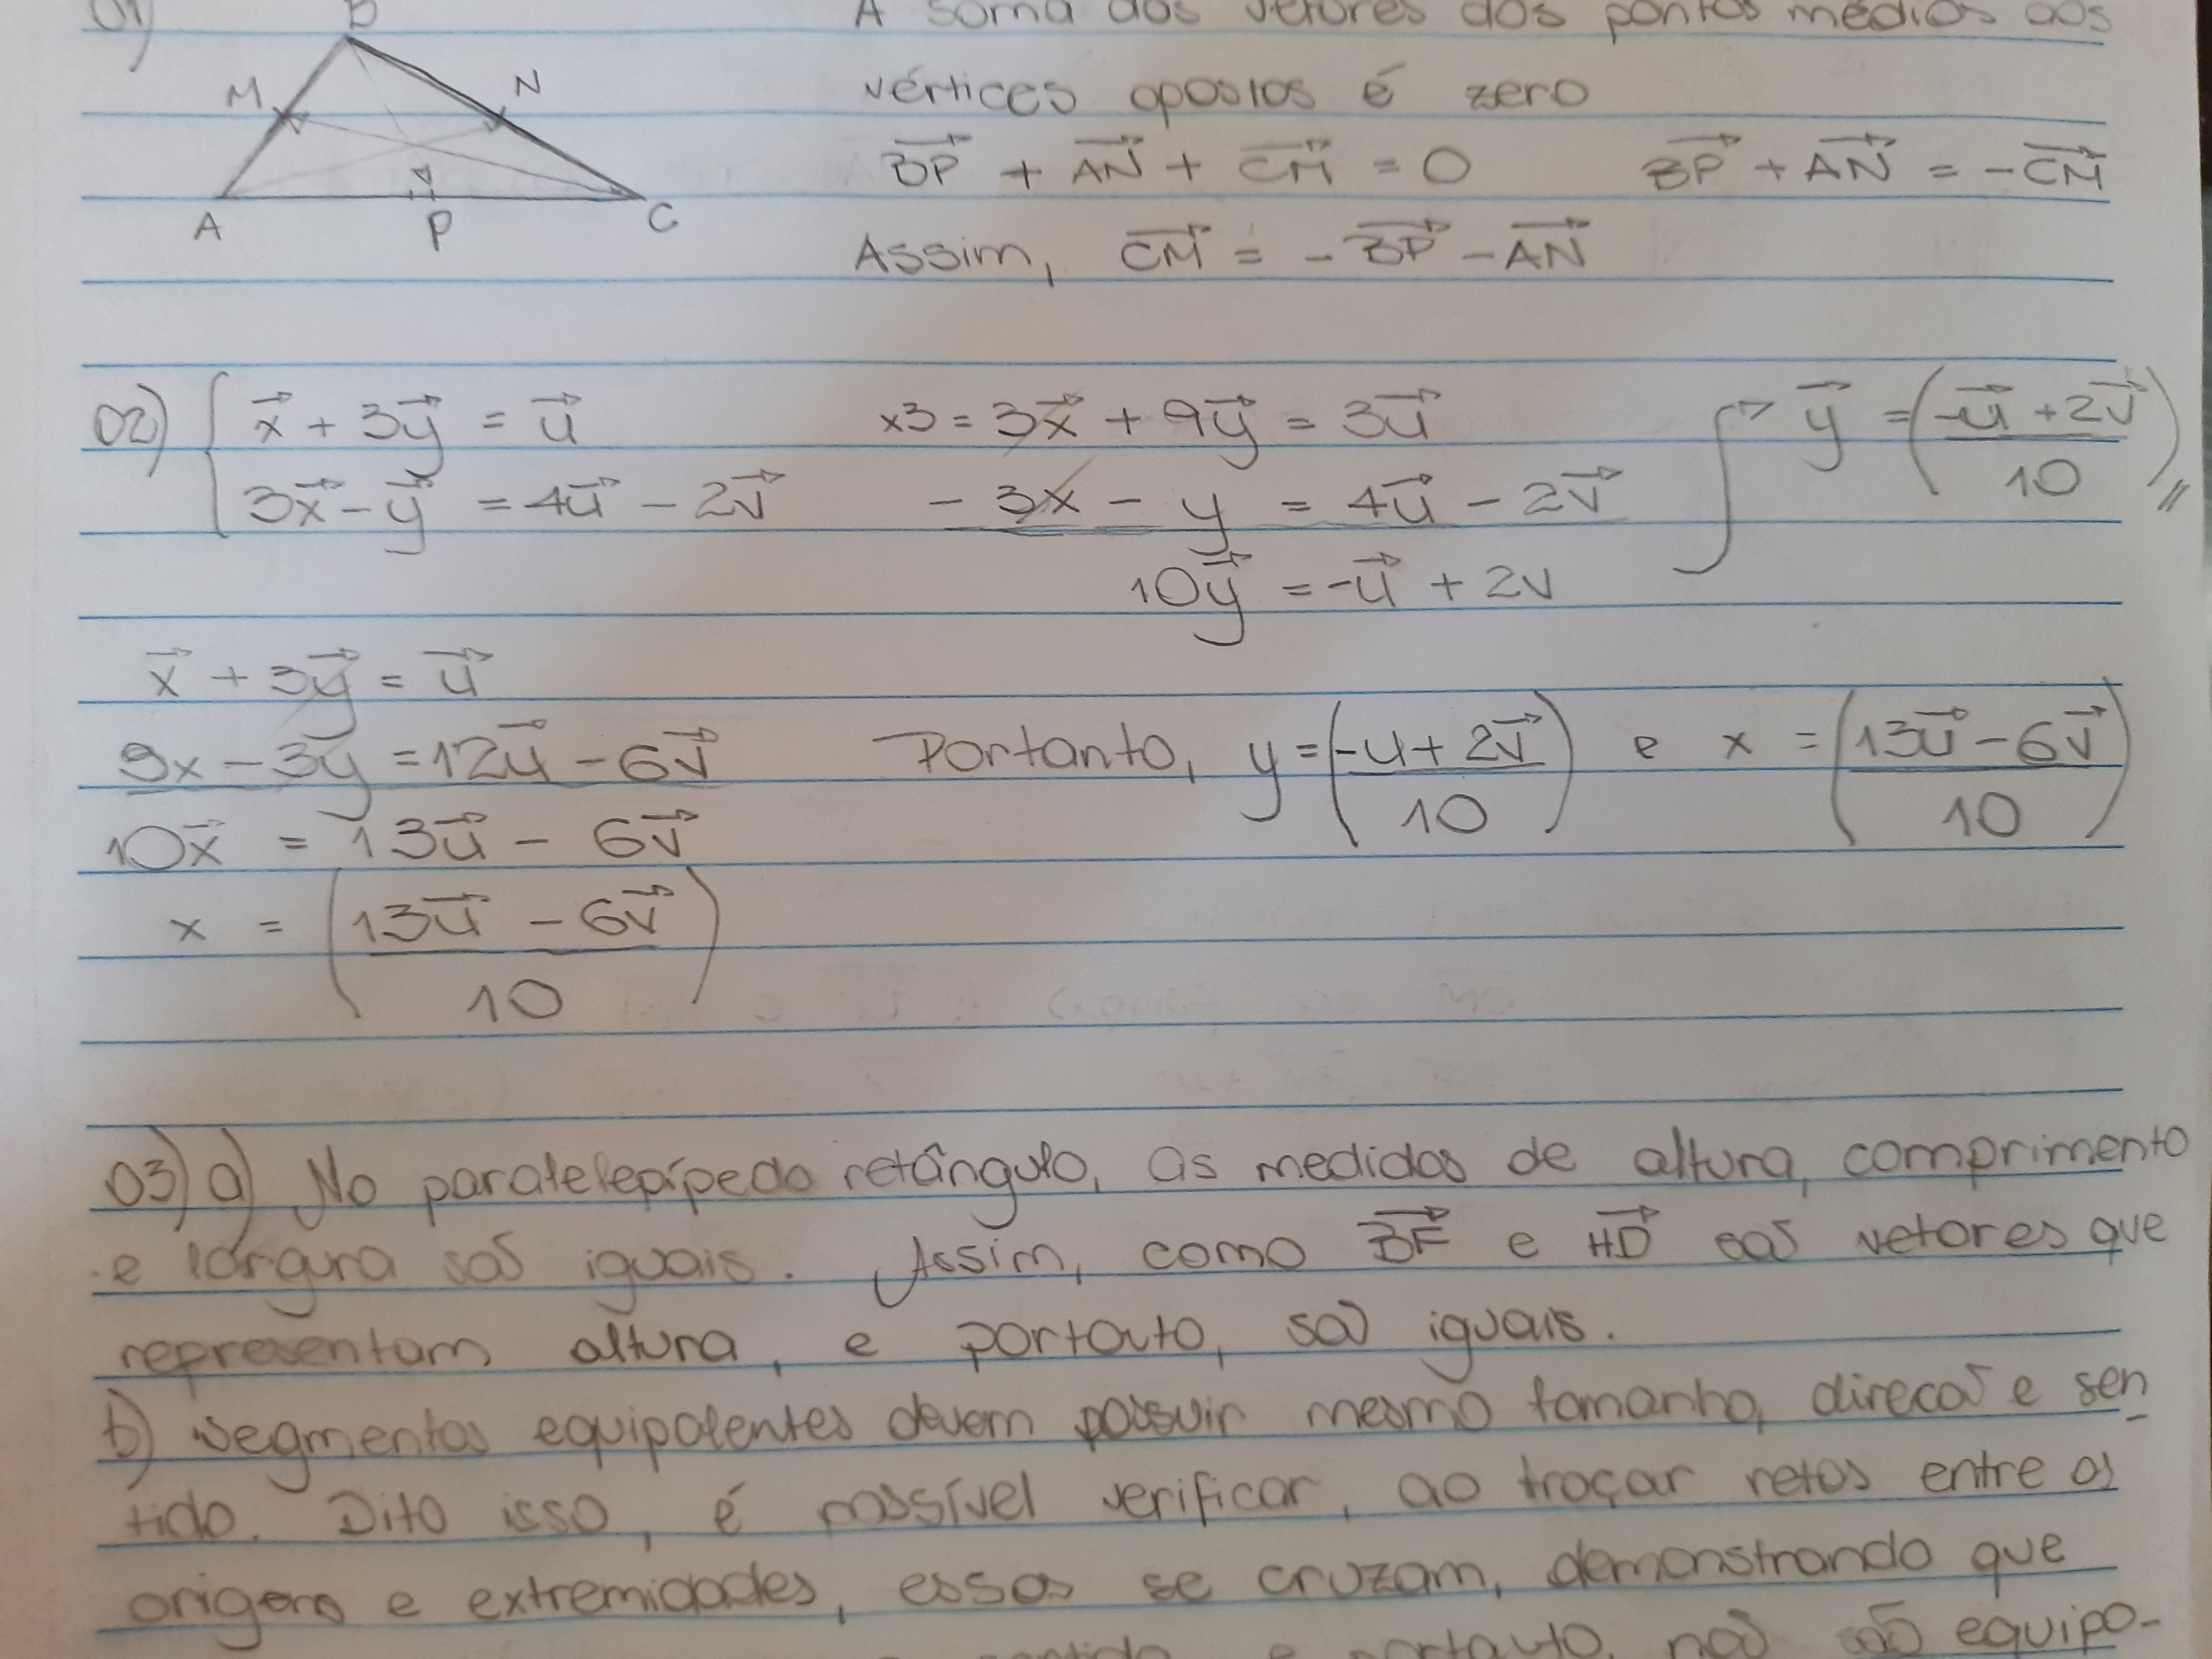 01)
B
A soma dos vetores dos pontos médios aos
M
N
vértices opostos é zero
BP + AN + CM = 0 BP + AN = -CM
A
P
C
Assim, CM = - BP - AN
02) { x + 3y = u x3 = 3x + 9y = 3u → y = (-u + 2v)
3x - y = 4u - 2v - 3x - y = 4u - 2v 10 //
10y = -u + 2v
x + 3y = u
9x - 3y = 12u - 6v Portanto, y = (-u + 2v) e x = (13u - 6v)
10x = 13u - 6v 10 10
x = (13u - 6v)
10
03) a) No paralelepípedo retângulo, as medidas de altura, comprimento
e largura são iguais. Assim, como BF e HD são vetores que
representam altura, e portanto, são iguais.
b) segmentos equipolentes devem possuir mesmo tamanho, direcao e sen
tido. Dito isso, é possível verificar, ao traçar retas entre as
origens e extremidades, essas se cruzam, demonstrando que
sentido e portanto, não são equipo-